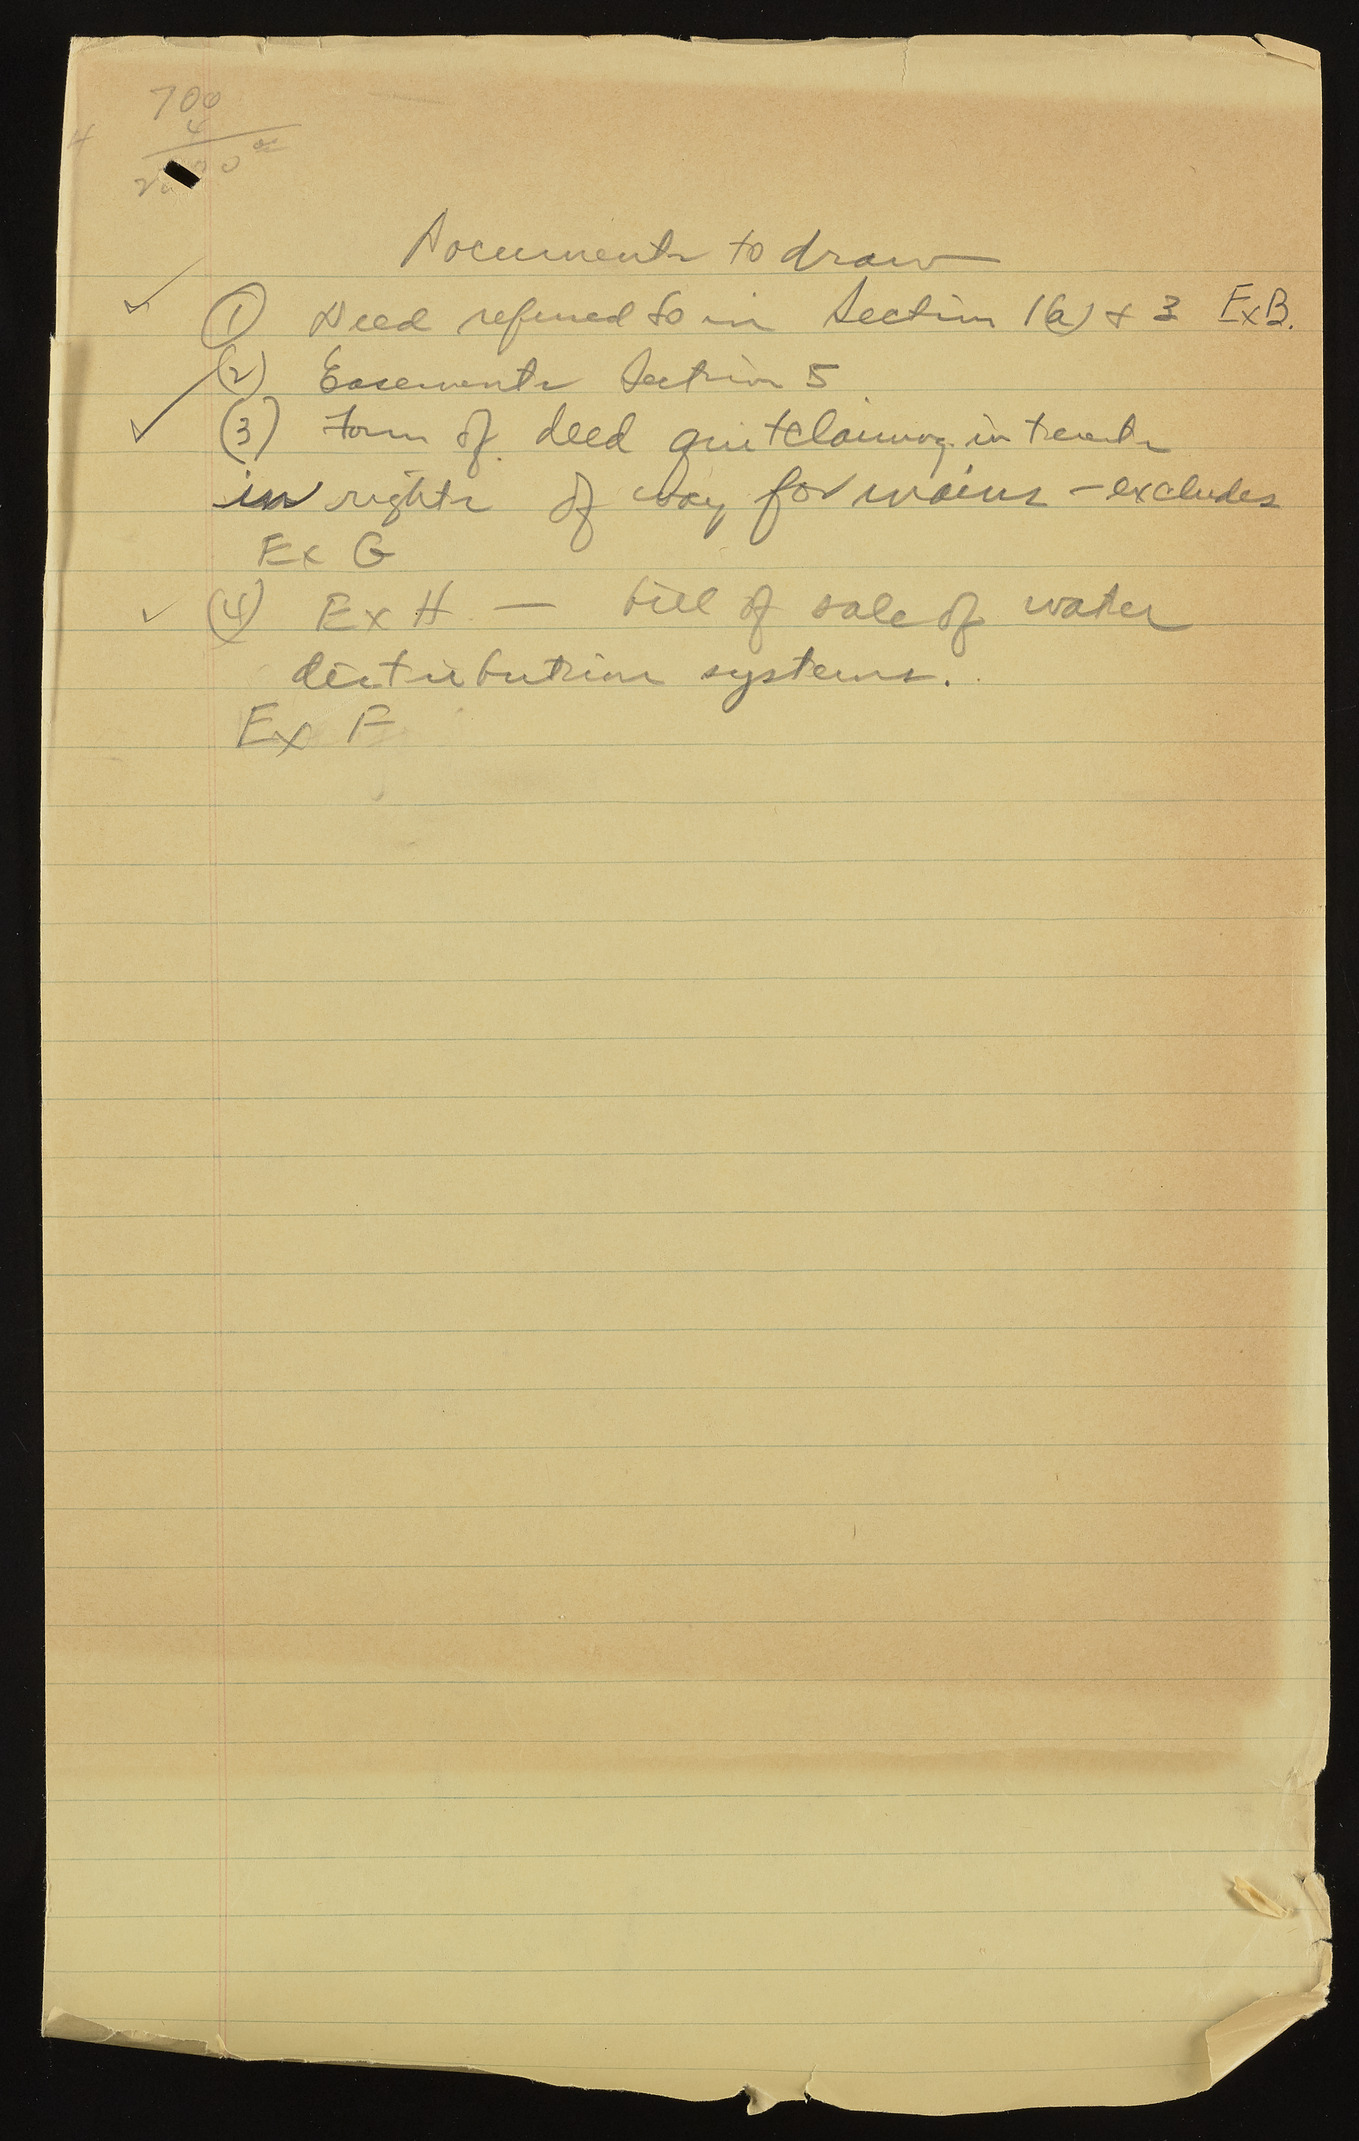 700
4
Documents to draw
✓ (1) Deed referred to in Section 1(a) & 3 Ex B.
(2) Easements Section 5
✓ (3) Form of deed quitclaiming interests
in rights of way for mains - excludes
Ex G
✓ (4) Ex H — bill of sale of water
distribution systems.
Ex F